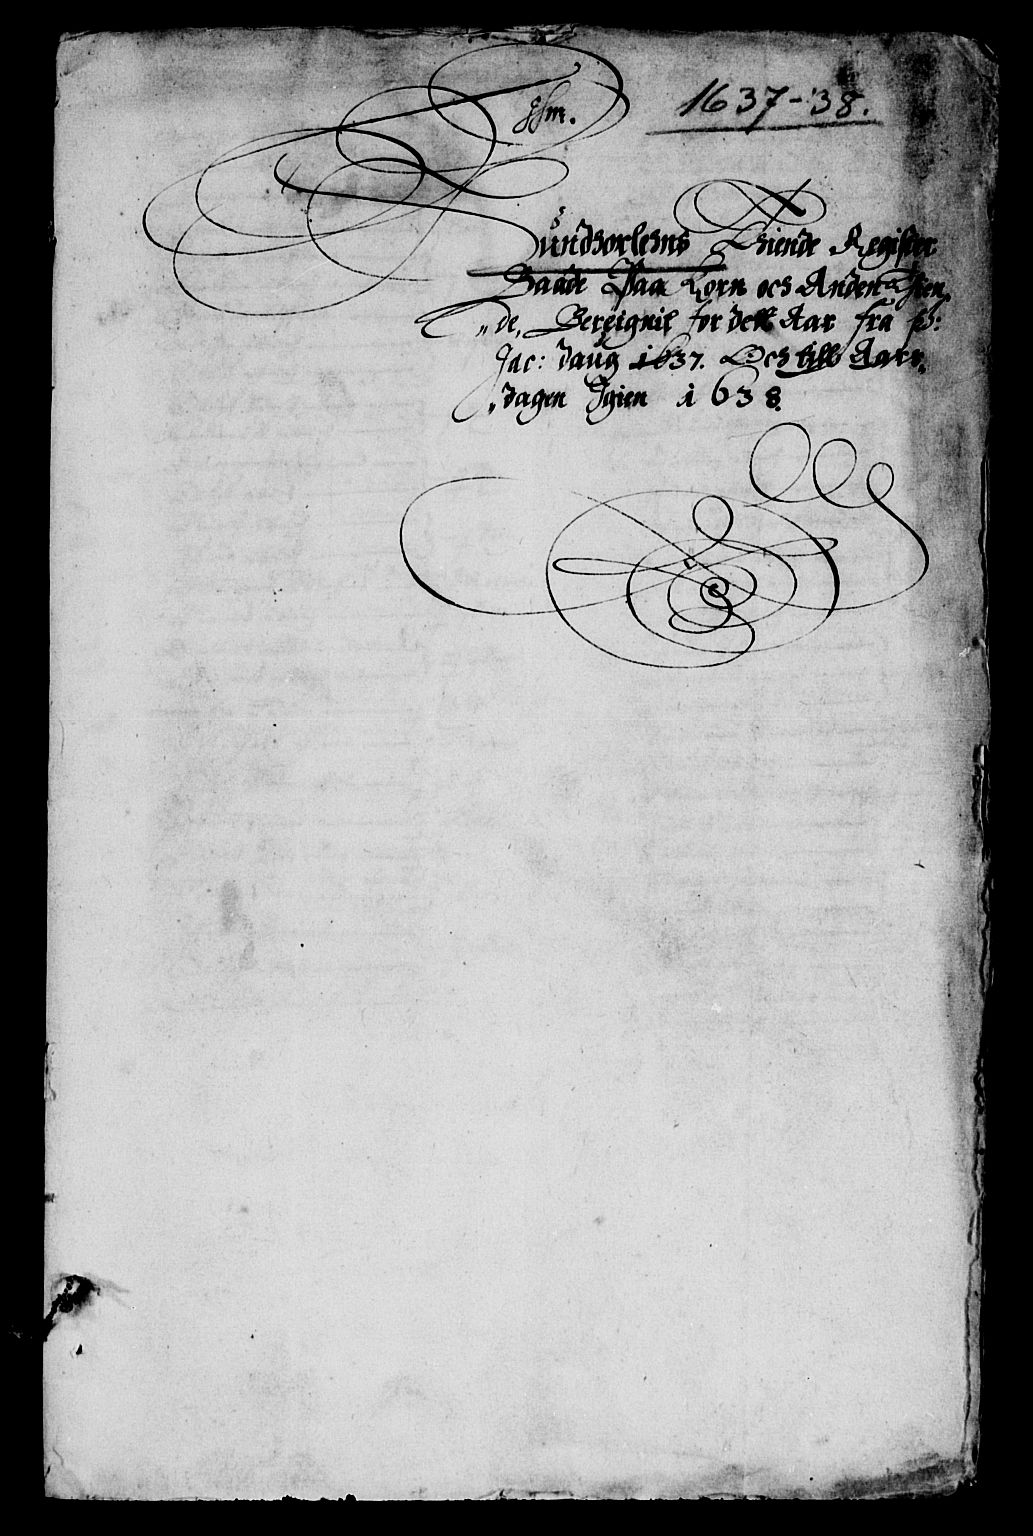 1637-38.
Sundhorlehns Thiende Register
Baade Paa Korn och Anden Thien,,
,,de, Beregnit for dett Aar fra St:
Jac: daug 1637. Och till Aars,,
,,dagen Igien 1638.